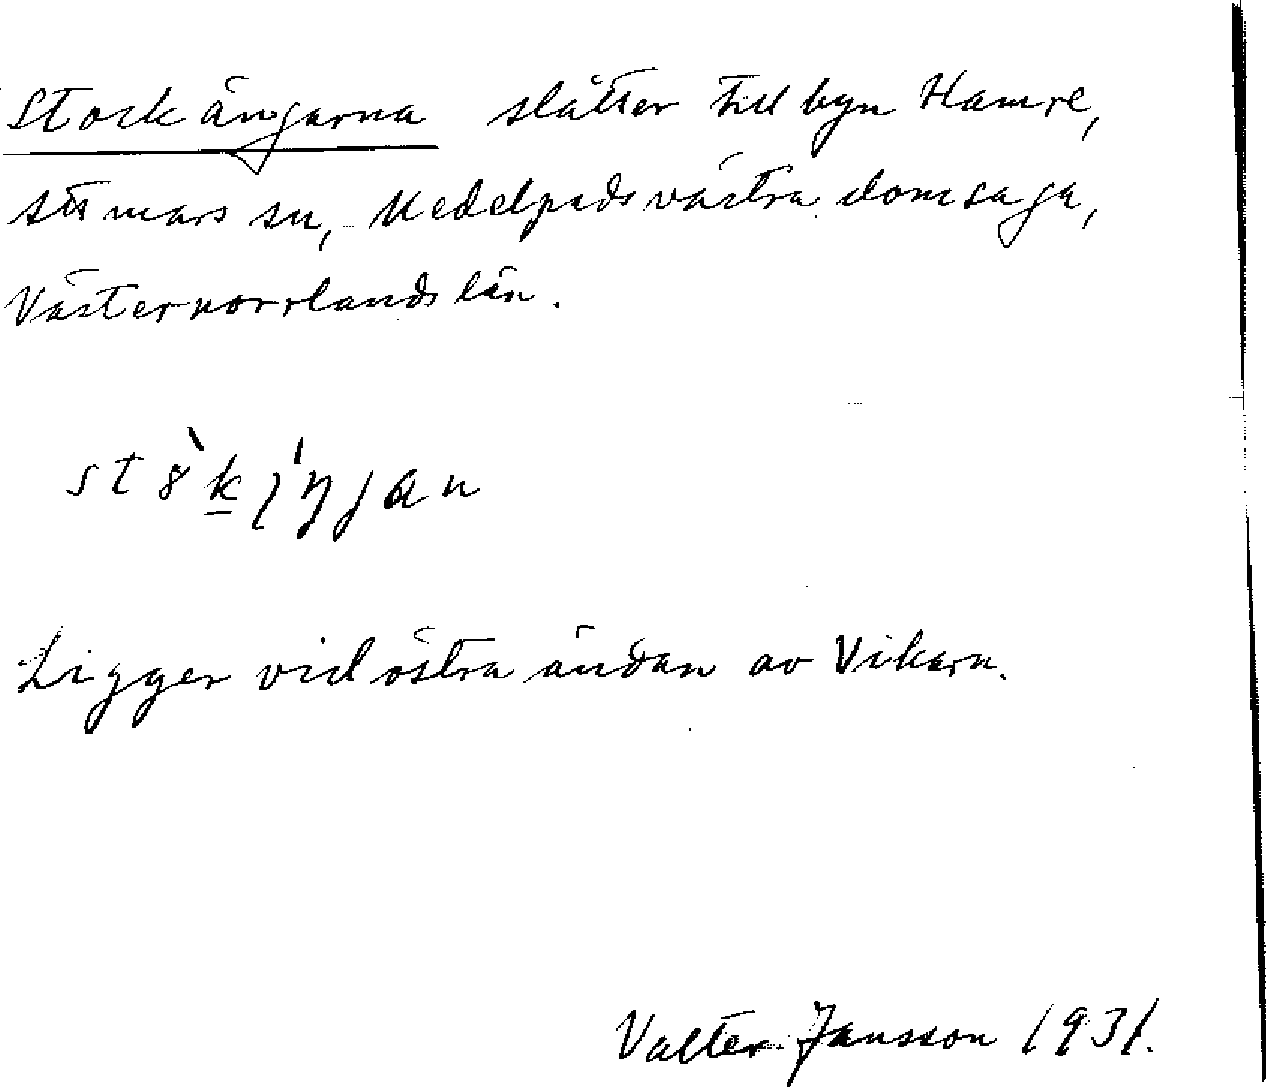 Stockängarna slåtter till byn Hamre,
Attmars sn, Medelpads västra domsaga,
Västernorrlands län.
Ligger vid östra ändan av Vikarn.
Valter Jansson 1931.